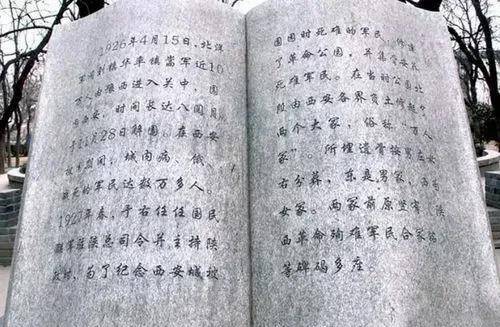 1926年4月15日,北洋
军阀刘镇华率镇嵩军近10
万人由潼西进入关中,围
西安,时间长达八个月
于11月28日解围。在西安
被围期间,城内病、饿、
死的军民达数万多人。
1927年春,于右任任国民
联军驻陕总司令并主持陕
政时,为了纪念西安城被
围困时死难的军民,修建
了革命公园,并集资安葬
死难军民。在当时公园北
段由西安各界负土修起了
两个大冢,俗称“万人
冢”。所埋遗骨按男左女
右分葬,东是男冢,西为
女冢。两冢前原竖有《陕
西革命殉难军民合冢
等碑碣多座。